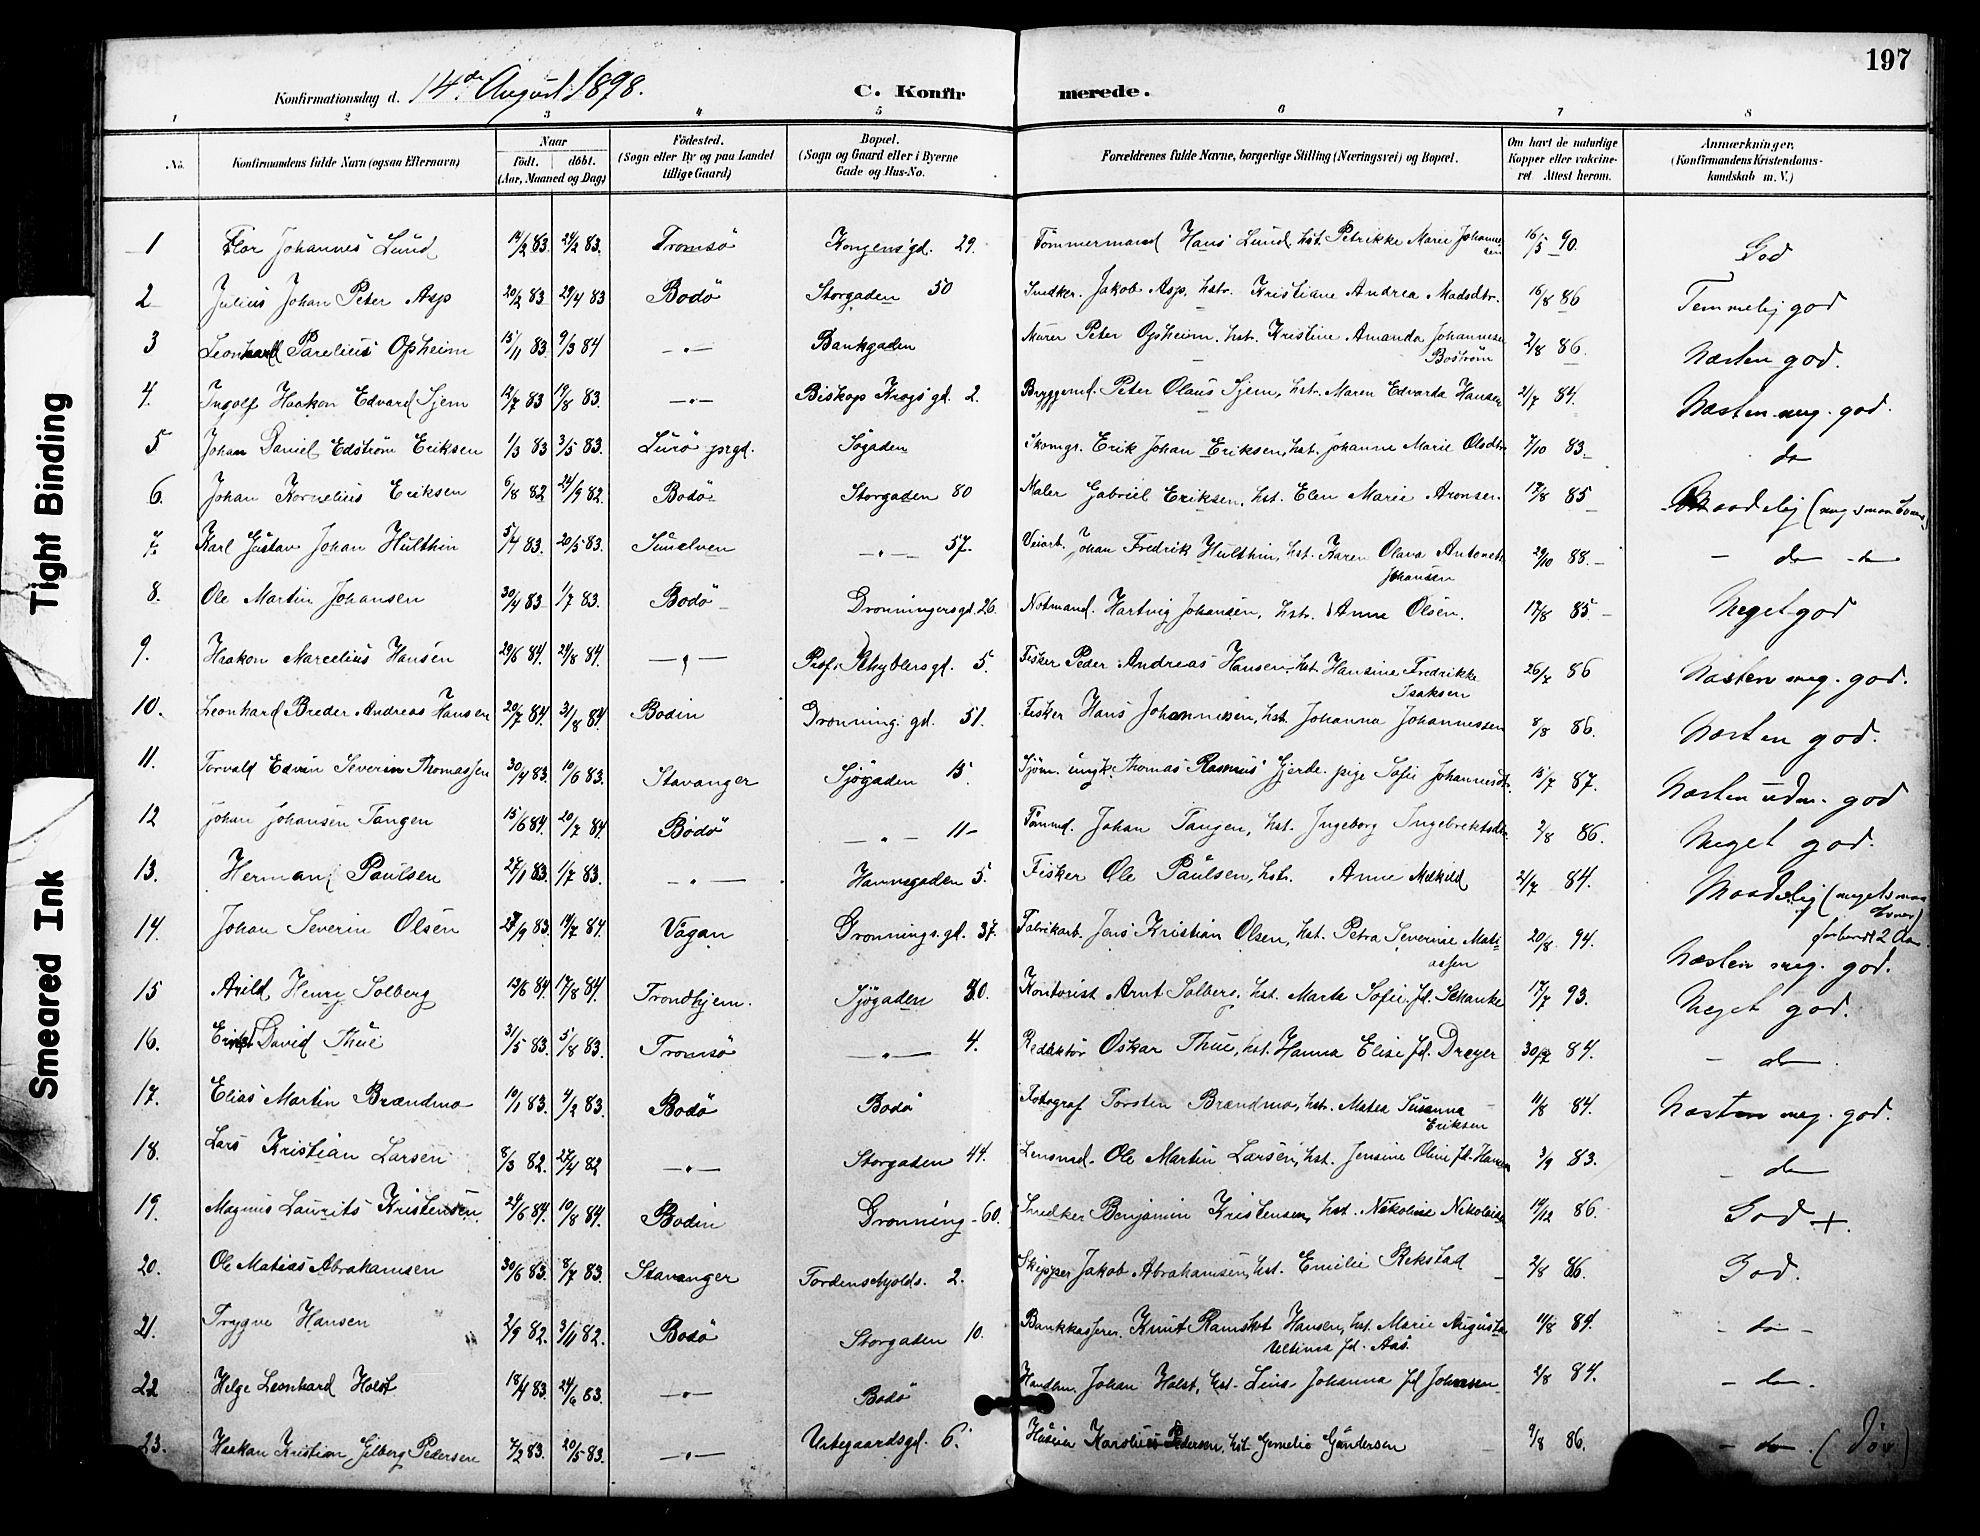 197
Konfirmationsdag d. 14de August 1898. C. Konfir merede.
1 2 3 4 5 6 7 8
No. Konfirmandens fulde Navn (ogsaa Efternavn) Naar födt. döbt. (Aar, Maaned og Dag) Födested. (Sogn eller By og paa Landet tillige Gaard) Bopæl. (Sogn og Gaard eller i Byerne Gade og Hus-No. Forældrenes fulde Navne, borgerlige Stilling (Næringsvei) og Bopæl. Om havt de naturlige Kopper eller vakcineret Attest herom. Anmærkninger. (Konfirmandens Kristendomskundskab m. V.)
1 Flor Johannes Lund 12/2 83. 24/3 83. Tromsö Kongensgd. 29. Tömmermand Hans Lund, hst. Petrikke Marie Johannesen 16/5 90. God
2 Julius Johan Peter Asp 20/2 83 29/4 83 Bodö Storgaden 50 Snedker. Jakob Asp, hstr. Kristiane Andrea Madsdtr. 16/8 86 Temmelig god
3 Leonhard Parelius Opheim 15/11 83. 9/3 84 -"- Bankgaden Murer Peter Opheim, hstr. Kristine Amanda Johannesen Boström 2/8 86. Næsten god.
4. Ingolf Haakon Edvard Sjem 12/7 83 19/8 83. -"- Biskop Krogs gd. 2. Bryggemd. Peter Olaus Sjem, hst. Maren Edvarda Hansen 21/7 84. Næsten meg. god.
5 Johan Daniel Edström Eriksen 1/3 83 3/5 83. Lurö prgd. Sögaden Skomgr. Erik Johan Eriksen, hst. Johanne Marie Olsdtr 7/10 83. do
6. Johan Kornelius Eriksen 6/8 82 24/9 82. Bodö Storgaden 80 Maler Gabriel Eriksen, hst. Elen Marie Aronsen. 17/8 85 Maadelig (meg. smaa Evner)
7. Karl Gustav Johan Hulthin 5/4 83. 20/5 83. Sunelven -"- 57. Veiarb. Johan Fredrik Hulthin, hst. Karen Olava Antonette Johansen 29/10 88. - do - do
8. Ole Martin Johansen 30/4 83 1/7 83. Bodö Dronningensgd. 26. Notmand. Hartvig Johansen, hstr. Anna Olsen. 17/8 85 Meget god
9. Haakon Marcelius Hansen 29/6 84. 24/8 84. -"- Prof. Schyttersgd. 5. Fisker Peder Andreas Hansen, hst. Hansine Fredrikke Isaksen 26/7 86 Næsten meg. god.
10. Leonhard Breder Andreas Hansen 20/7 84. 31/8 84. Bodin Dronning. gd. 51. Fisker Hans Johannesen, hst. Johanna Johannessen 8/8 86. Næsten god.
11. Torvald Edvin Severin Thomassen 30/4 83. 10/6 83. Stavanger Sjögaden 15. Sjöm. ungk. Thomas Rasmus Gjerde. pige Sofie Johannesdtr. 15/7 87. Næsten udm. god
12 Johan Johansen Tangen 15/6 84. 20/7 84. Bodö -"- 11- Tömmd. Johan Tangen, hst. Ingeborg Ingebrektsdtr. 2/8 86. Meget god.
13. Herman Paulsen 27/1 83. 1/7 83. -"- Havnegaden 5. Fisker Ole Paulsen, hstr. Anne Melkild 21/7 84. Maadelig (meget smaa Evner) forberedt 2 Aar
14. Johan Severin Olsen 27/9 83. 19/7 84. Vagan Dronnings.gd. 37. Fabrikarb. Jens Kristian Olsen, hst. Petra Severine Matiassen 20/8. 94. Næsten meg. god.
15 Arild Henry Solberg 13/6 84. 17/8 84. Trondhjem. Sjögaden 30. Kontorist Arnt Solberg, hst. Marta Sofie fd. Schanke 17/7 93. Meget god.
16. Einar David Thue 31/5 83. 5/8 83. Tromsö -"- 4. Redaktör Oskar Thue, hst. Hanna Elise fd. Dreyer 30/7 84. - do
17. Elias Martin Brændmo 10/1 83. 4/3 83. Bodö Bodö Fotograf Torsten Brændmo, hst. Matea Susanna Eriksen 11/8 84. Næsten meg. god.
18. Lars Kristian Larsen 8/3 82. 27/4 82 -"- Storgaden 44. Lensmd. Ole Martin Larsen, hst. Jensine Oline fd. Hansen 3/9 83. - do
19. Magnus Laurits Kristensen. 24/6 84. 10/8 84. Bodin Dronning - 60. Snedker Benjamin Kristensen, hst. Nikoline Nikolaisen 14/12 86. God +.
20. Ole Matias Abrahamsen 30/6 83. 8/7 83. Stavanger Tordenskjolds. 2. Skipper Jakob Abrahamsen, hst. Emilie Rekstad 2/8 86. God.
21. Trygve Hansen 2/9 82. 3/11 82. Bodö Storgaden 10. Bankkasserer. Knut Ramskot Hansen, hst. Marie Augusta Ultima fd. Aas. 11/8 84. - do -
22 Helge Leonhard Holst 18/4 83. 24/6 83 -"- Bodö Handlm. Johan Holst, hst. Lina Johanna fd Johnsen 2/8 84. - do -
23. Haakon Kristian Gilberg Pedersen 7/2 83. 20/5 83. -"- Vategaardsgd. 6. Karolius Pedersen, hst. Gundersen 9/8 86. - do. (Döv)
Tight Binding
Smeared Ink